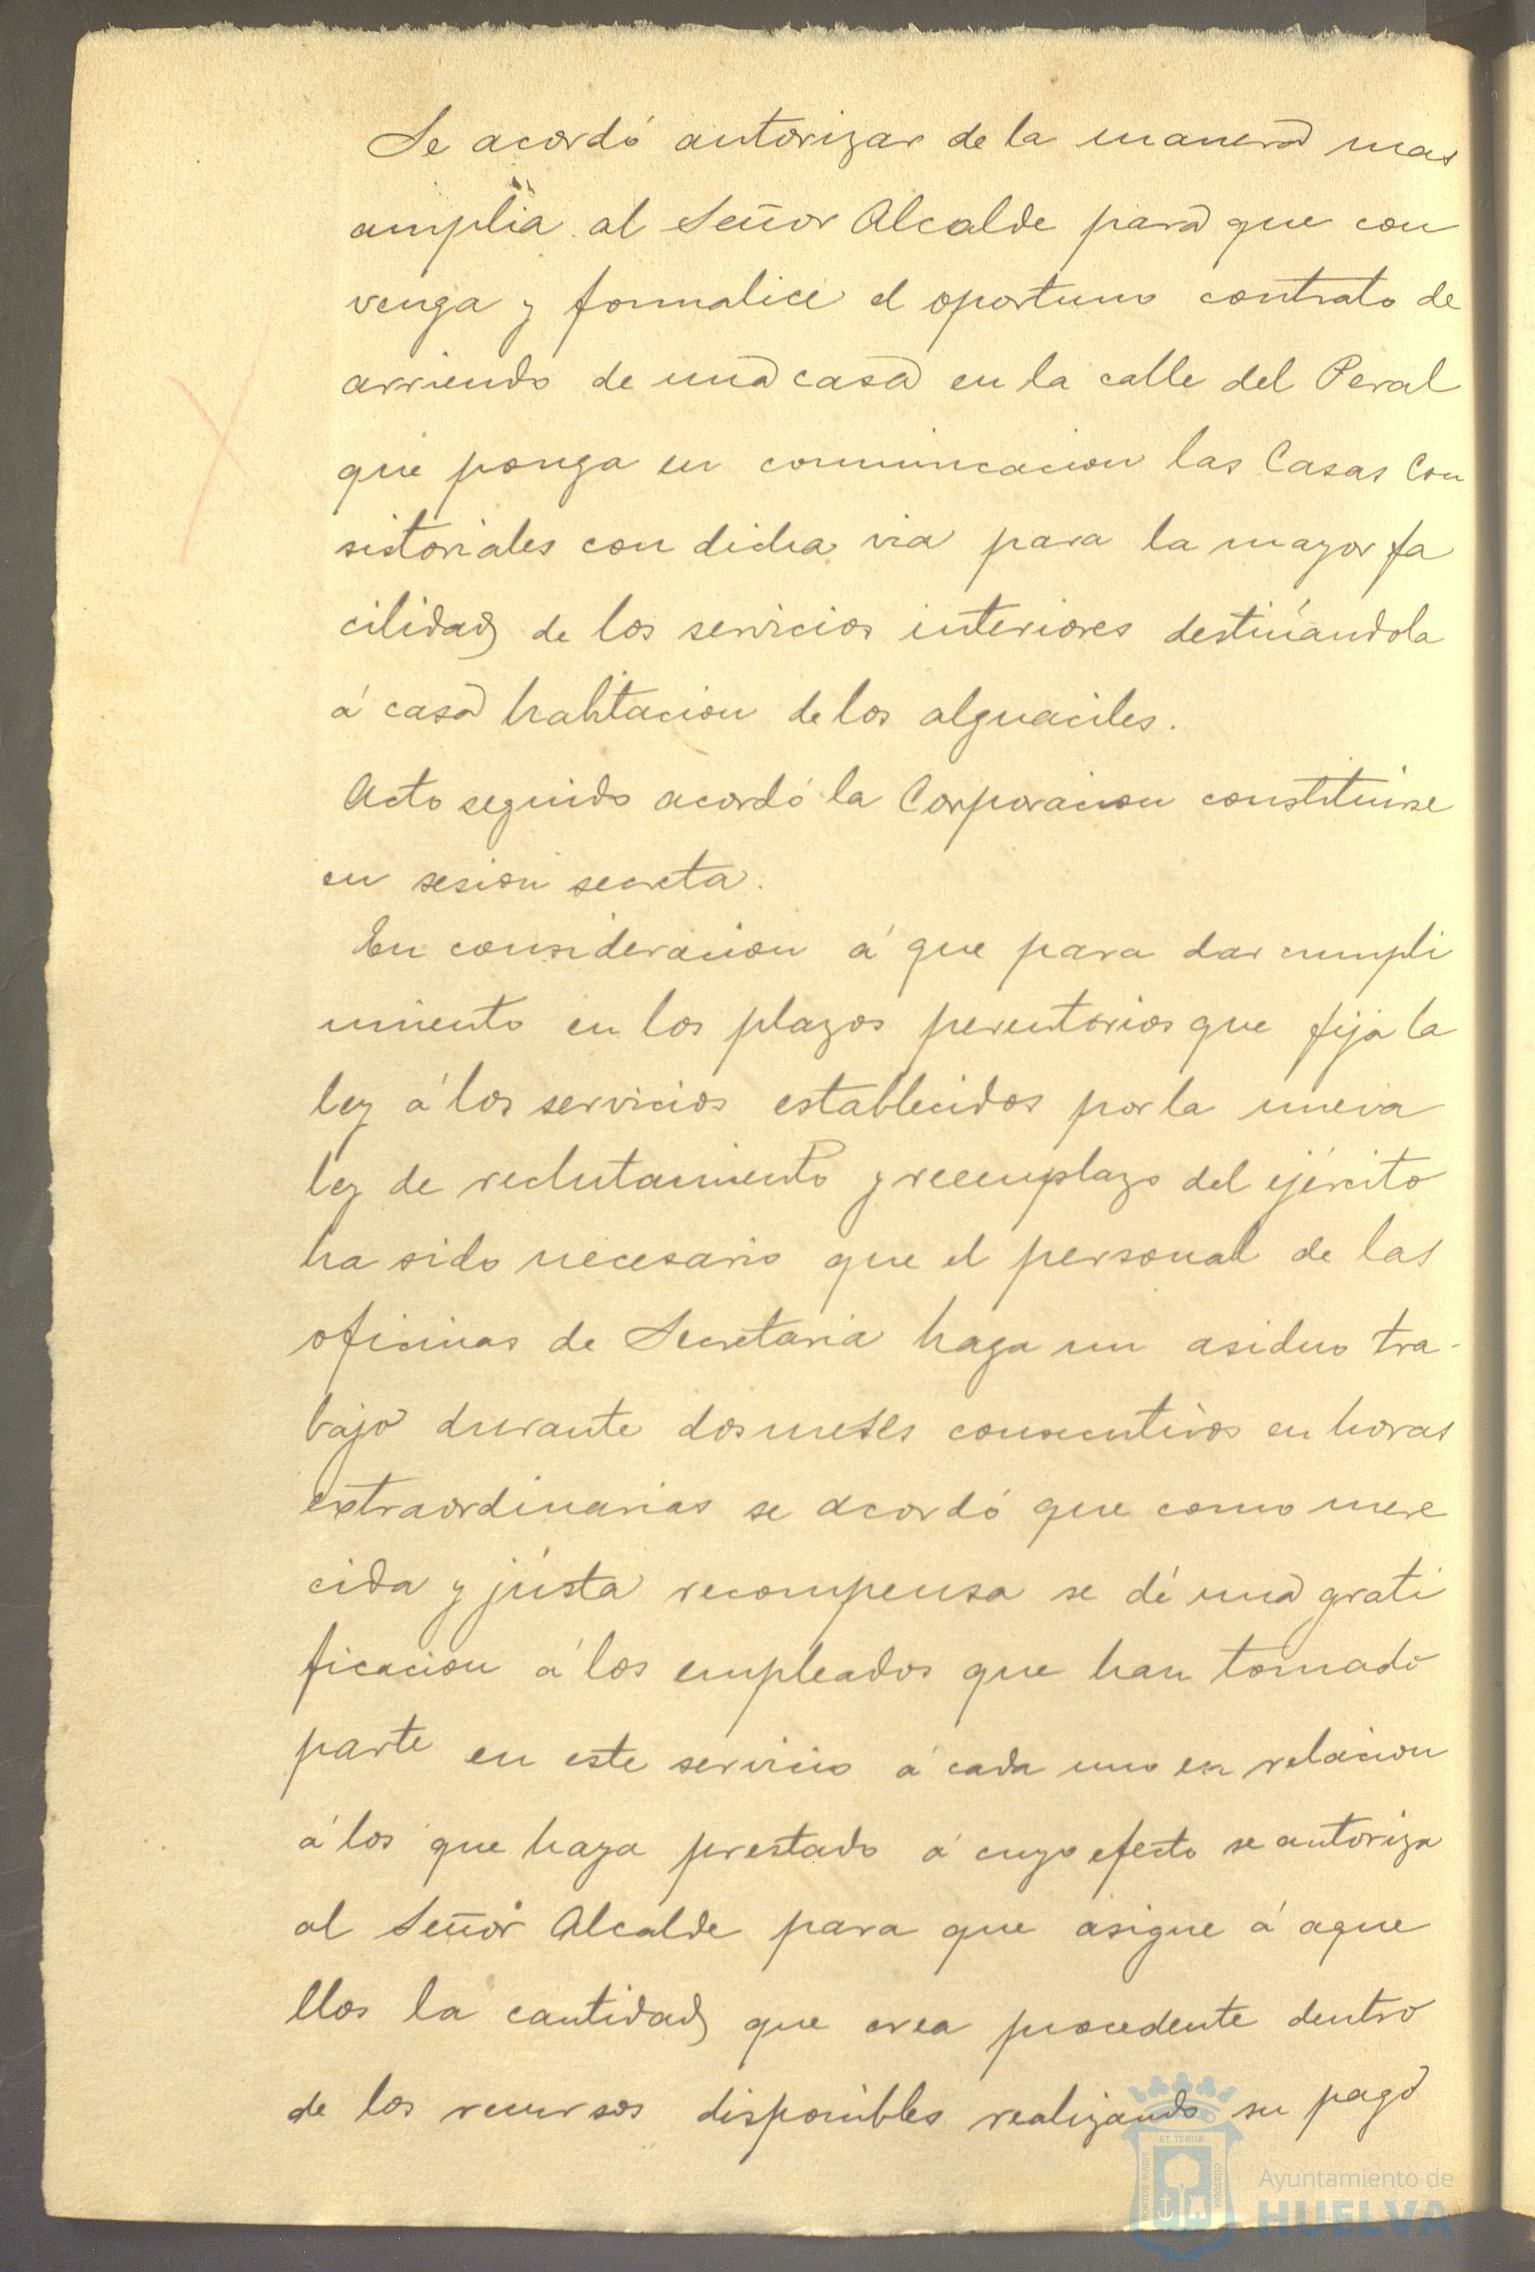 Se acordó autorizar de la manera mas
amplia al Señor Alcalde para que con
venga y formalice el oportuno contrato de
arriendo de una casa en la calle del Peral
que ponga en comunicacion las Casas Con
sistoriales con dicha via para la mayor fa
cilidad de los servicios interiores destinándola
á casa habitacion de los alguaciles.
Acto seguido acordó la Corporacion constituirse
en sesion secreta.
En consideracion á que para dar cumpli
miento en los plazos perentorios que fija la
ley á los servicios establecidos por la nueva
ley de reclutamiento y reemplazo del ejército
ha sido necesario que el personal de las
oficinas de Secretaria haga un asiduo tra-
bajo durante dos meses consecutivos en horas
extraordinarias se acordó que como mere
cida y justa recompensa se dé una grati
ficacion á los empleados que han tomado
parte en este servicio á cada uno en relacion
á los que haya prestado á cuyo efecto se autoriza
al Señor Alcalde para que asigne á aque
llos la cantidad que crea procedente dentro
de los recursos disponibles realizando su pago
PORTUS MARIS ET TERRÆ CUSTODIA
Ayuntamiento de
HUELVA